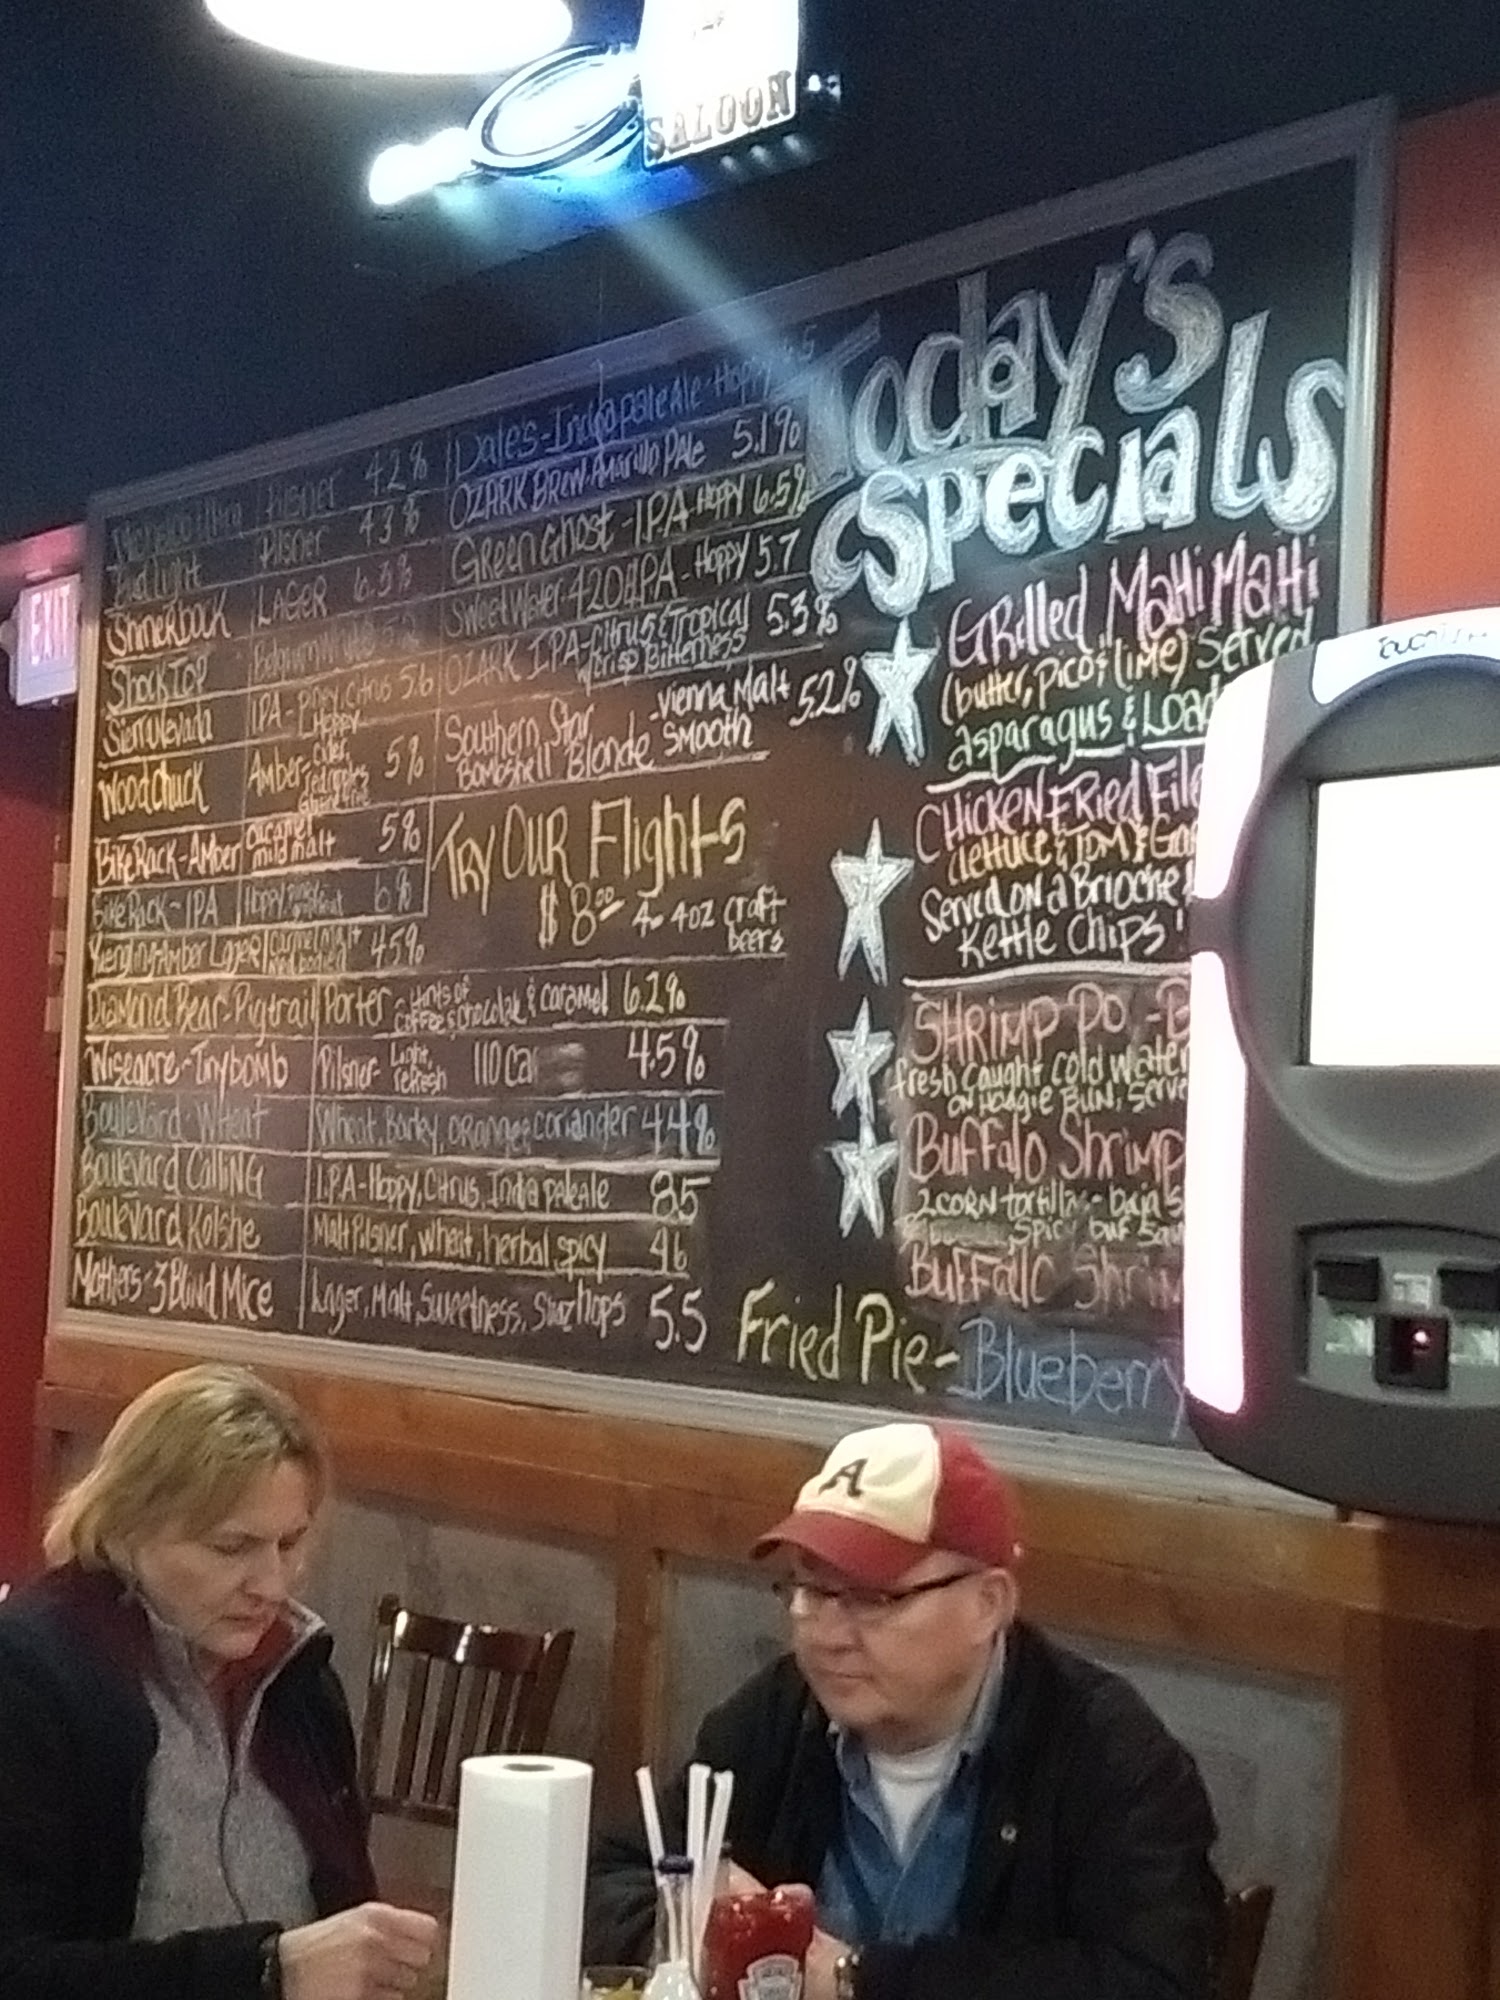 SALOON
EXIT
Today's
Specials
Pilsner 4.2%
Bud Light Pilsner 4.3%
Shinerbock LAGER 6.3%
Shock Top Belgium
Sierra Nevada IPA- Piney, Citrus 5.6
Hoppy
Woodchuck Amber- Cider, 5%
red apples
Gluten free
BikeRack-Amber caramel 5%
mild malt
BikeRack-IPA Hoppy 6%
Yuengling-Amber Lager 4.5%
Diamond Bear-Pigtrail Porter Hints of
coffee, chocolate & caramel 6.2%
Wiseacre-Tinybomb Pilsner- Light, 110 Ca 4.5%
refresh
Boulevard Wheat Wheat, Barley, orange & coriander 4.4%
Boulevard Calling I.P.A-Hoppy, Citrus, India pale ale 8.5
Boulevard Kolshe Malt Pilsner, wheat, herbal, spicy 4.6
Mothers-3 Blind Mice Lager, Malt, Sweetness, hops 5.5
Dale's-India pale Ale-Hoppy 6.5
OZARK Brew-Amarillo Pale 5.1%
Green Ghost-IPA-Hoppy 6.5%
Sweet Water 420 IPA-Hoppy 5.7
OZARK IPA-Citrus & Tropical 5.3%
w/crisp Bitterness
Southern Star -Vienna Malt 5.2%
Bombshell Blonde Smooth
Try Our Flights
$8.00 4-4oz craft
beers
Grilled Mahi Mahi
(butter, pico & lime) Served
asparagus & Load
Chicken Fried File
(lettuce & Tom &
Served on a Brioche
Kettle Chips
Shrimp Po-B
fresh caught cold water
on Hoagie Bun, Serve
Buffalo Shrimp
2 corn tortillas-baja s
Spicy buf Sau
Buffalo Shrim
Fried Pie-Blueberry
A
HEINZ